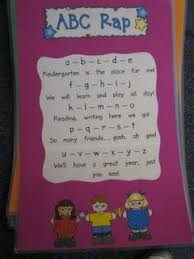 ABC Rap
a – b – c – d – e
Kindergarten is the place for me!
f – g – h – i – j
We will learn and play all day!
k – l – m – n – o
Reading, writing here we go!
p – q – r – s – t
So many friends... gosh, oh gee!
u – v – w – x – y – z
We'll have a great year, just
you see!